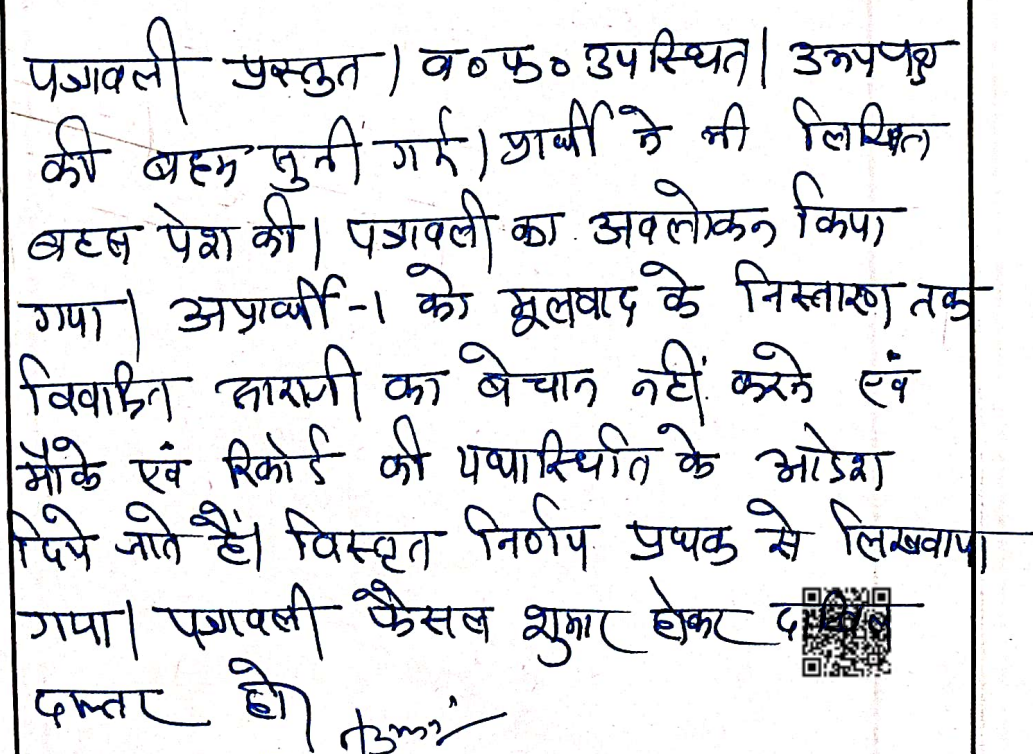 पत्रावली प्रस्तुत। व०फ०उपस्थित। उभयपक्ष
की बहस सुनी गई। प्रार्थी ने भी लिखित
बहस पेश की। पत्रावली का अवलोकन किया
गया। अप्रार्थी-1 को मूलवाद के निस्तारण तक
विवादित आराजी का बेचान नहीं करने एवं
मौके एवं रिकोर्ड की यथास्थिति के आदेश
दिये जाते हैं। विस्तृत निर्णय प्रथक से लिखवाया
गया। पत्रावली फैसल शुमार होकर दाखिल
दफ्तर हो।